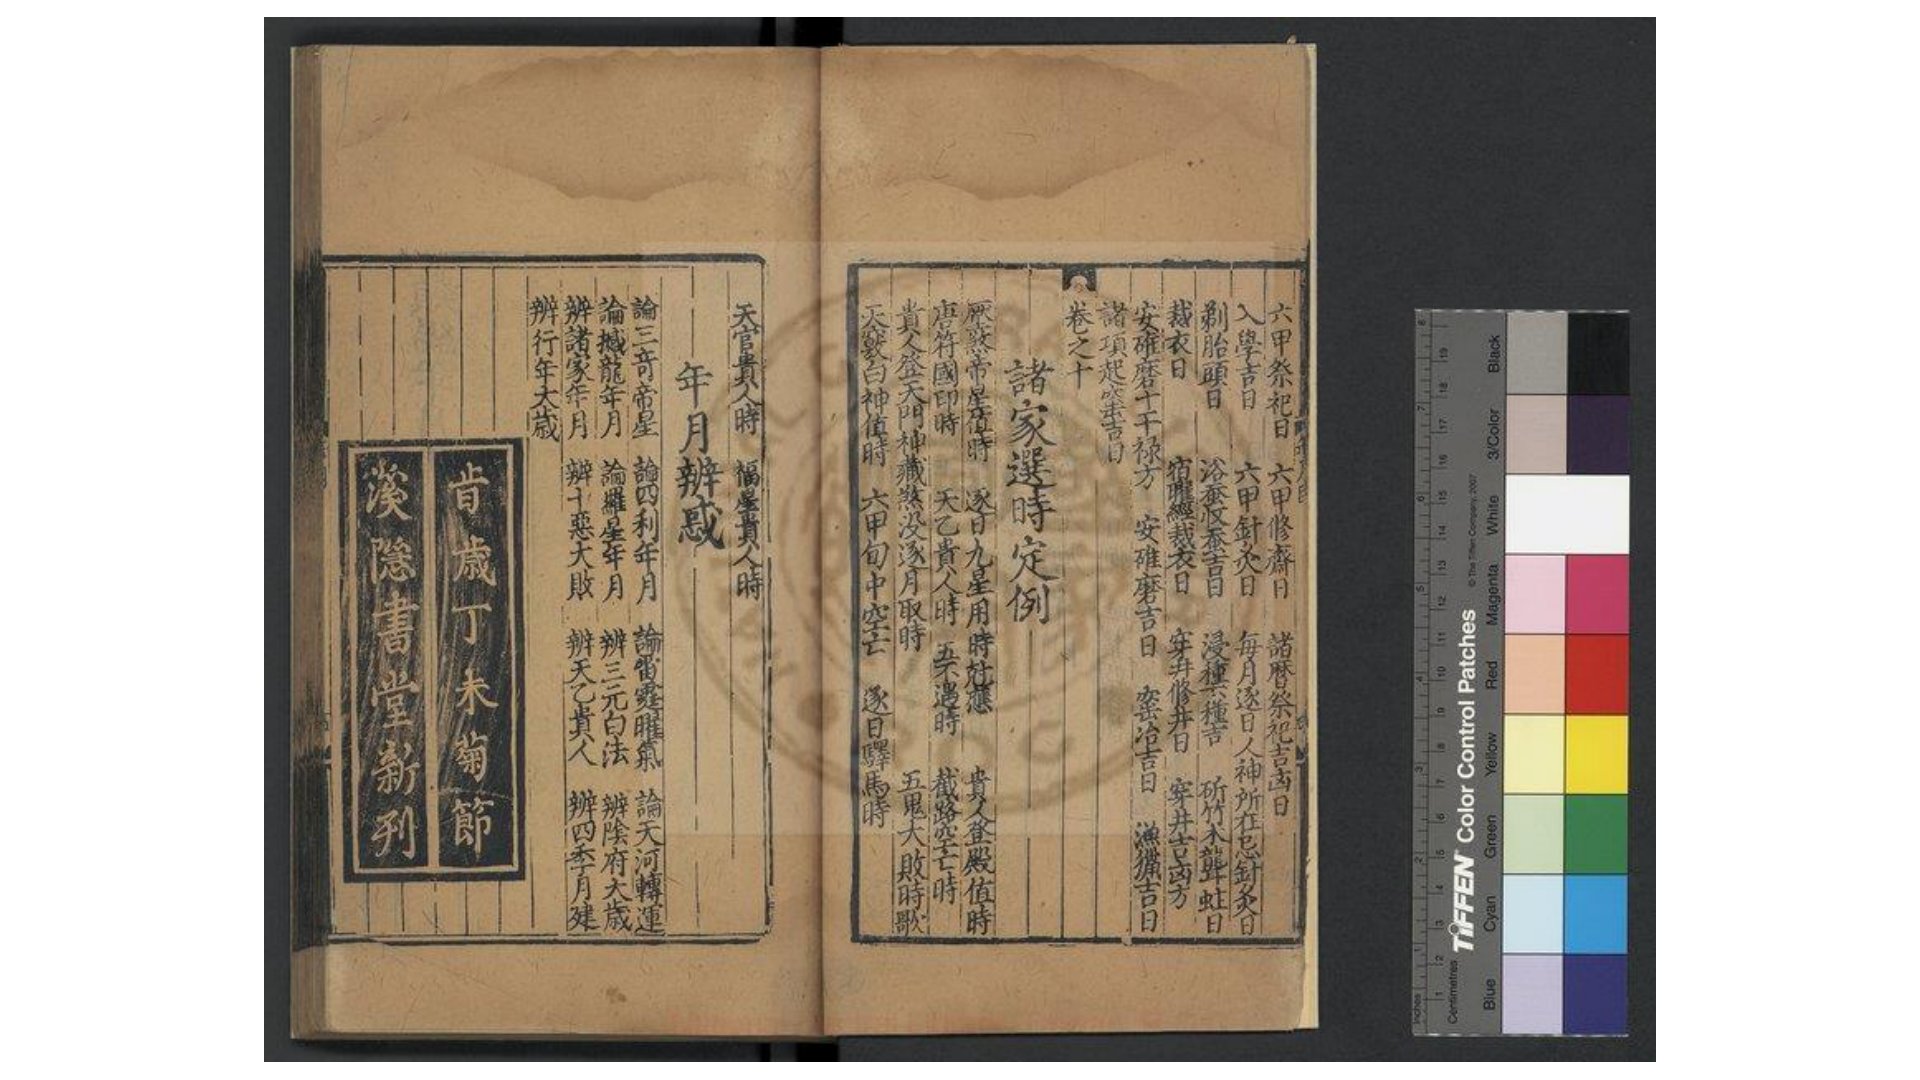 六甲祭祀日 六甲修齋日 諸曆祭祀吉凶日
入學吉日 六甲針灸日 每月逐日人神所在忌針灸日
剃胎頭日 浴蚕收蚕吉日 浸種下種吉 斫竹木聾蛀日
裁衣日 宿曜經裁衣日 穿井修井日 穿井吉凶方
安碓磨十干禄方 安碓磨吉日 窑冶吉日 漁獵吉日
諸項起造吉日
卷之十
諸家選時定例
帝星值時 逐日九星用時尅應 貴人登殿值時
唐符國印時 天乙貴人時 五不遇時 截路空亡時
貴人登天門神藏煞没逐月取時 五鬼大敗時歌
天 白神值時 六甲旬中空亡 逐日驛馬時
天官貴人時 福星貴人時
年月辨惑
論三奇帝星 論四利年月 論雷霆曜氣 論天河轉運
論撼龍年月 論羅星年月 辨三元白法 辨陰府大歲
辨諸家年月 辨十惡大敗 辨天乙貴人 辨四季月建
辨行年大歲
歲丁未菊節
溪隱書堂新刊
Centimetres
Inches
TIFFEN Color Control Patches
© The Tiffen Company, 2007
Blue
Cyan
Green
Yellow
Red
Magenta
White
3/Color
Black